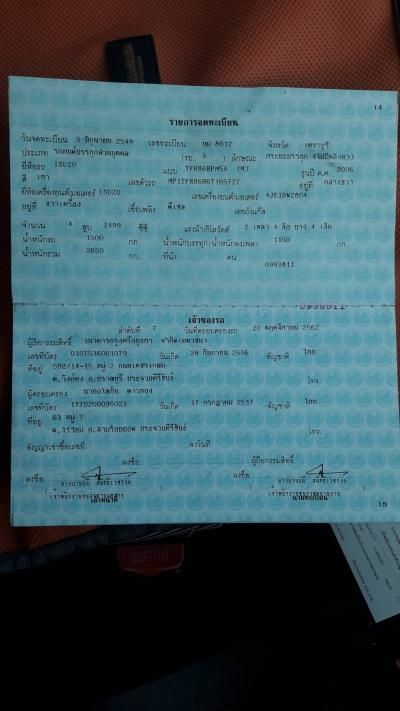 14
รายการจดทะเบียน
วันจดทะเบียน 5 มิถุนายน 2549 เลขทะเบียน บม 8012 จังหวัด เพชรบุรี
ประเภท รถยนต์บรรทุกส่วนบุคคล (รย. 3 ) ลักษณะ กระบะบรรทุก (ไม่มีหลังคา)
ยี่ห้อรถ ISUZU แบบ (M) รุ่นปี ค.ศ. 2006
สี เทา เลขตัวรถ MP1TFR86H6T165727 อยู่ที่ กลางขวา
ยี่ห้อเครื่องยนต์/มอเตอร์ ISUZU เลขเครื่องยนต์/มอเตอร์ 4JK1DW2804
อยู่ที่ ขวาเครื่อง เชื้อเพลิง ดีเซล เลขถังแก๊ส
จำนวน 4 สูบ 2499 ซีซี แรงม้า/กิโลวัตต์ 2 เพลา 4 ล้อ ยาง 4 เส้น
น้ำหนักรถ 1500 กก. น้ำหนักบรรทุก/น้ำหนักลงเพลา 1150 กก.
น้ำหนักรวม 2650 กก. ที่นั่ง คน
0993811
0993811
เจ้าของรถ
ลำดับที่ 7 วันที่ครอบครองรถ 20 พฤศจิกายน 2562
ผู้ถือกรรมสิทธิ์ ธนาคารกรุงศรีอยุธยา จำกัด(มหาชน)
เลขที่บัตร 0107536001079 วันเกิด 28 กันยายน 2536 สัญชาติ ไทย
ที่อยู่ 502/14-15 หมู่ 2 ถนนเพชรเกษม
ต.วังก์พง อ.ปราณบุรี ประจวบคีรีขันธ์ โทร.
ผู้ครอบครอง ดาวทอง
เลขที่บัตร 1770200095023 วันเกิด 17 กรกฎาคม 2537 สัญชาติ ไทย
ที่อยู่ 63 หมู่ 7
ต.ไร่ใหม่ อ.สามร้อยยอด ประจวบคีรีขันธ์ โทร.
สัญญาเช่าซื้อเลขที่ ลงวันที่
ลงชื่อ ผู้ถือกรรมสิทธิ์
ลงชื่อ ลงชื่อ
เจ้าหน้าที่ นายทะเบียน
15
PRESS